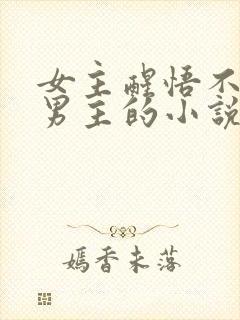 女主醒悟不
男主的小說
嫣香未落